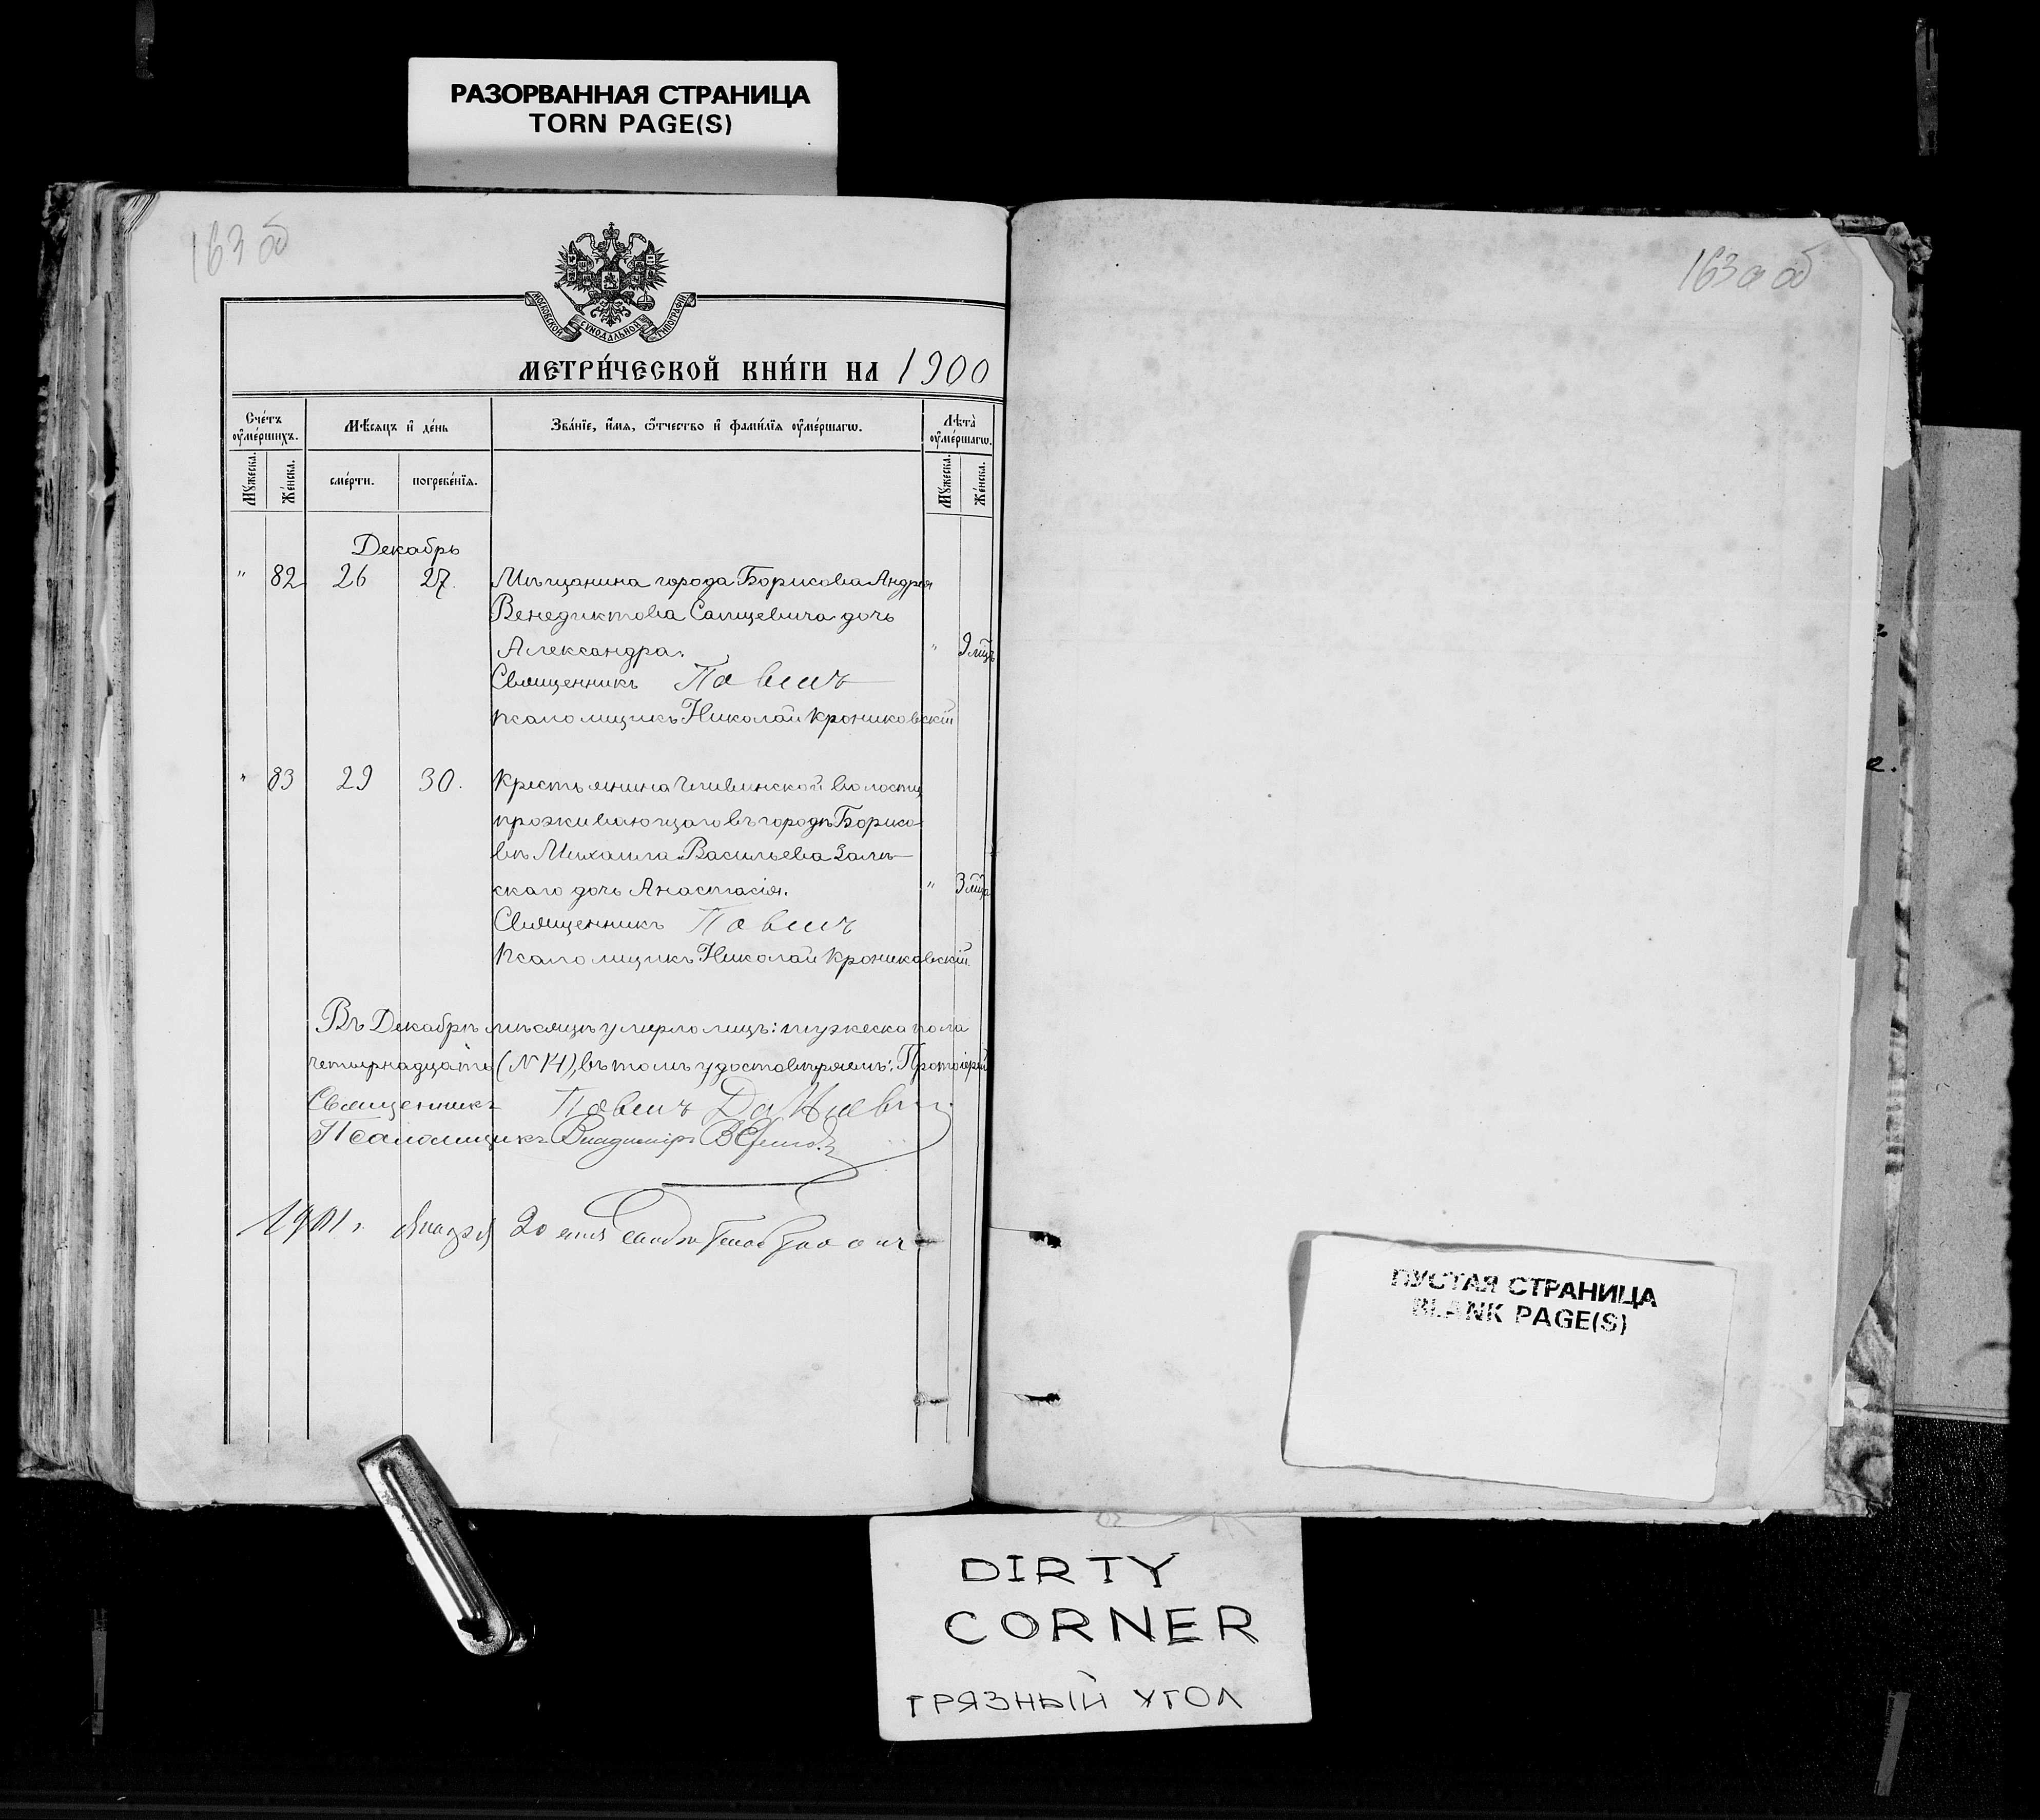 РАЗОРВАННАЯ СТРАНИЦА
TORN PAGE(S)
163 об
163а об
МОСКОВСКОЙ СѴНОДАЛЬНОЙ ТИПОГРАФІИ
МЕТРИ́ЧЕСКОЙ КНИ́ГИ НА 1900
Сче́тъ ᲂу҆ме́ршихъ.
Мѣ́сяцъ и҆ де́нь
Зва́нїе, и҆́мѧ, ѻ҆́тчество и҆ фами́лїѧ ᲂу҆ме́ршагѡ.
Лѣта̀ ᲂу҆ме́ршагѡ.
Мꙋ́жеска.
Же́нска.
сме́рти.
погребе́нїѧ.
Мꙋ́жеска.
Же́нска.
Декабрь
" 82 26 27. Мѣщанина города Борисова Андрея
Венедиктова Сапцевича дочь
Александра. " 9 мцъ
Священникъ Павелъ
Псаломщикъ Николай Крониковскій
" 83 29 30. Крестьянина волости,
проживающаго въ городѣ Борисо-
вѣ Михаила Васильева Залѣ-
скаго дочь Анастасія. " 3 мца
Священникъ Павелъ
Псаломщикъ Николай Крониковскій.
Въ Декабрѣ мѣсяцѣ умерло лицъ: мужеска пола
четырнадцать (№ 14), въ томъ удостовѣряемъ: Протоіерей
Священникъ Павелъ
Псаломщикъ Владиміръ
1901 г. Января 20 дня
ПУСТАЯ СТРАНИЦА
BLANK PAGE(S)
DIRTY
CORNER
ГРЯЗНЫЙ УГОЛ